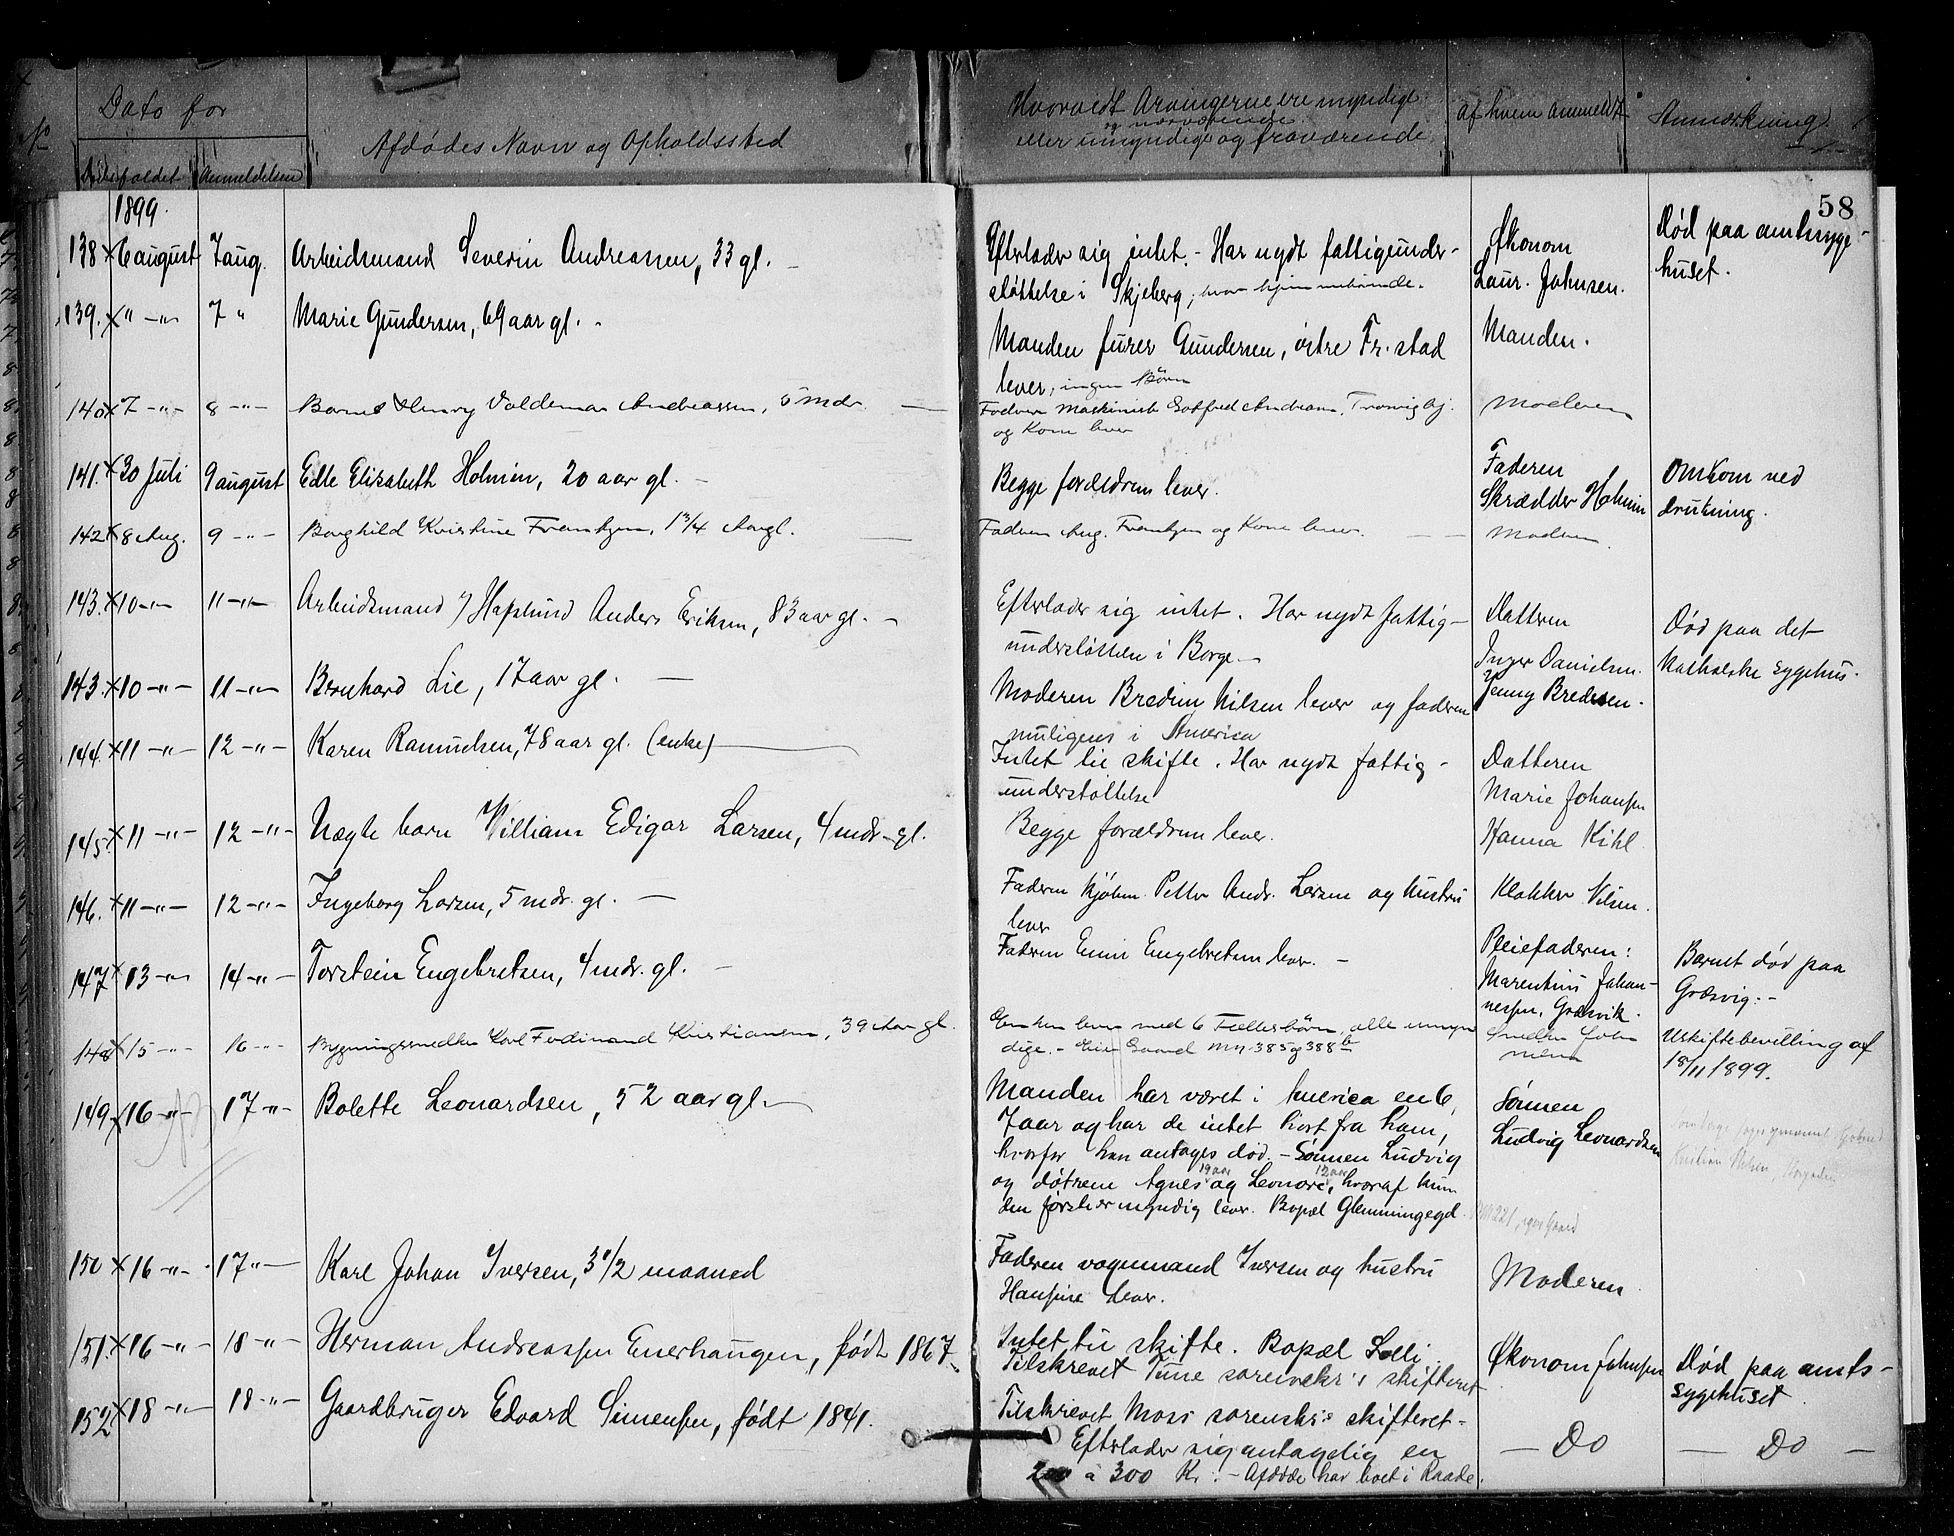 Dato for
No
Dødsfaldet Anmeldelsen
Afdødes Navn og Opholdssted
Hvorvidt Arvingerne ere myndige
og nærværende
eller umyndige og fraværende
Af hvem anmeldt
Anmærkning
58
1899.
138 x 6 august 7 aug. Arbeidsmand Severin Andreassen, 33 gl. -
Efterlader sig intet. - Har nydt fattigunder-
støttelse i Skjeberg,
Økonom
Laur. Johnsen.
Død paa amtssyge-
huset.
139. x " -"- 7 " Marie Gundersen, 69 aar gl. -
Manden furer Gundersen, østre Fr.stad
lever, ingen Børn
Manden.
140 x 7 -"- 8 -"- Barnet Henry Valdemar Andreassen, 5 mdr.
Faderen Maskinist Gotfred Andreasen, Trosvig
og Kone lever
Moderen
141. x 30 Juli 9 august Edle Elisabeth Holmin, 20 aar gl. -
Begge forældrene lever.
Faderen
Skrædder Holmin
Omkom ved
drukning.
142 x 8 Aug. 9 -"- Borghild Kristine Frantzen, 1 3/4 Aargl.
Faderen Aug. Frantzen og Kone lever.
Moderen.
143. x 10 -"- 11 -"- Arbeidsmand Haslund Anders Eriksen, 83 aar gl. -
Efterlader sig intet. Har nydt fattig-
understøttelse i Borge -
Datteren
Inger Danielsen.
Død paa det
katholske sygehus.
143. x 10 -"- 11 -"- Bernhard Lie, 17 aar gl. -
Moderen Bredine Nilsen lever og faderen
muligens i America
Jenny Bredesen.
144. x 11 -"- 12 -"- Karen Ramudsen, 78 aar gl. (enke)
Intet til skifte. Har nydt fattig-
understøttelse
Datteren
Marie Johansen
145. x 11 -"- 12 -"- Uægte barn William Edigar Larsen, 4 mdr. gl.
Begge forældrene lever.
Hanna Kihl
146. x 11 -"- 12 -"- Ingeborg Larsen, 5 mdr. gl. -
Faderen kjøbm. Petter Andr. Larsen og hustru
lever
Klokker Nilsen.
147 x 13 -"- 14 -"- Torstein Engebretsen, 4 mdr. gl. -
Faderen Emil Engebretsen lever. -
Pleiefaderen:
Marentius Johan-
nessen, Græsvik.
Barnet død paa
Græsvig. -
148 x 15 -"- 16 -"- Bygningssnedker Karl Ferdinand Kristiansen, 39 Aar gl.
Enken lever med 6 Fællesbørn, alle umyn
dige. - Eier Gaard Mn. 385 og 388 b
Snedker Joh
Uskiftebevilling af
18/11 1899.
149 x 16 -"- 17 -"- Bolette Leonardsen, 52 aar gl. -
Manden har været i America en 6,
7 aar og har de intet hørt fra ham,
hvorfor han antages død. - Sønnen Ludvig
19 aar 12 aar
og døtrene Agnes og Leonore, hvoraf kun
den første er myndig lever. Bopæl Glemmingegd.
Sønnen
Ludvig Leonardsen
150 x 16 -"- 17 -"- Karl Johan Iversen, 3 1/2 maaned
Faderen vognmand Iversen og hustru
Hansine lever.
Moderen
151. x 16 -"- 18 -"- Herman Andreassen Enerhaugen, født 1867.
Intet til skifte. Bopæl Solli.
Tilskrevet Tune sorenskr's skifteret
Økonom Johnsen
Død paa amts-
sygehuset
152 x 18 -"- 18 -"- Gaardbruger Edvard Simensen, født 1841.
Tilskrevet Moss sorenskr's skifteret -
Efterlader sig antagelig en
200 à 300 Kr. - Afdøde har boet i Raade.
- Do
- Do -